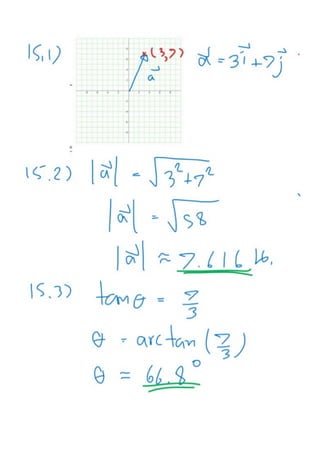 15.1) (3,7) a⃗ = 3i⃗ + 7j⃗
a⃗
15.2) |a⃗| = √3²+7²
|a⃗| = √58
|a⃗| ≈ 7.616 lb.
15.3) tan θ = 7/3
θ = arctan (7/3)
θ = 66.8°